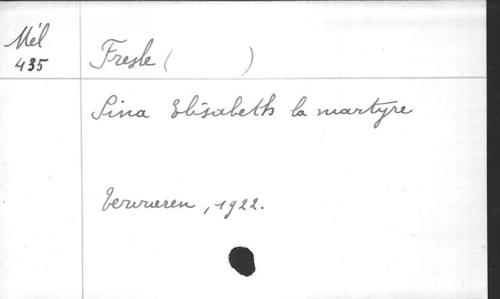 Mél
435
Fresle ( )
Sina Elisabeth la martyre
Vervueren, 1922.